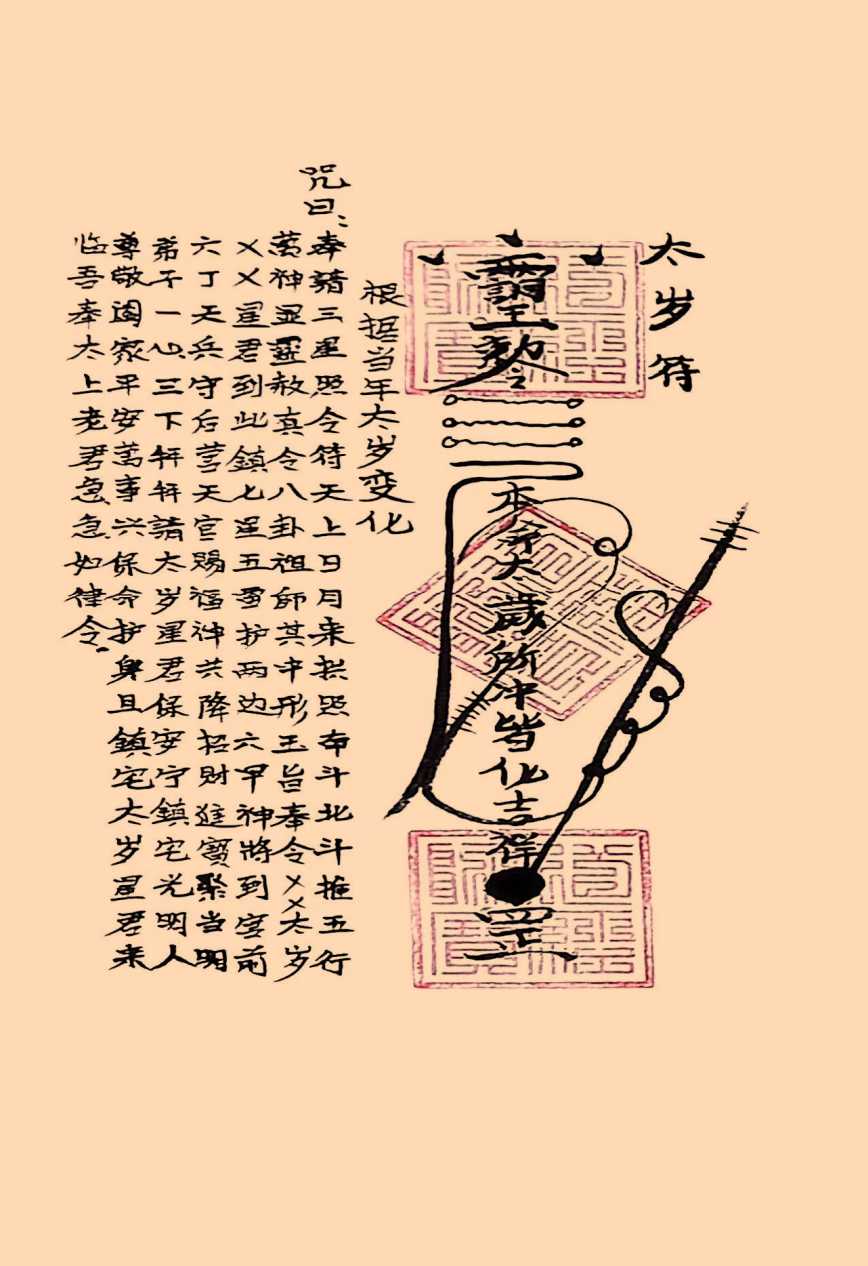 太岁符
本命太歲所冲皆化吉祥罡
根据当年太岁变化
咒曰：
奉請三星照令符天上日月来拱照南斗北斗推五行
萬神显靈敕真令八卦祖师其中形玉旨奉令××太岁
××星君到此鎮七星五雷护两边六甲神將到宫前
六丁天兵守后营天官赐福神共降招财進寳聚当明
弟子一心三下軒軒請太岁星君保安宁鎮宅光明人
尊敬闔家平安萬事兴保命护身且鎮宅太岁星君来
临吾奉太上老君急急如律令。